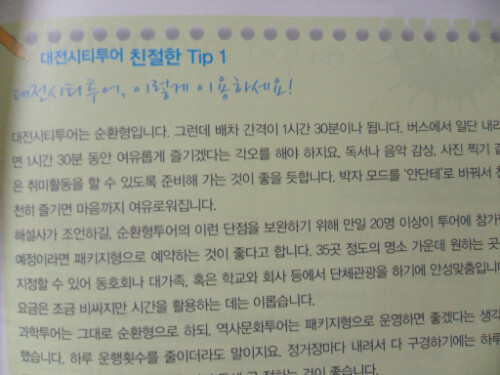 대전시티투어 친절한 Tip 1
대전시티투어, 이렇게 이용하세요!
대전시티투어는 순환형입니다. 그런데 배차 간격이 1시간 30분이나 됩니다. 버스에서 일단 내리
면 1시간 30분 동안 여유롭게 즐기겠다는 각오를 해야 하지요. 독서나 음악 감상, 사진 찍기 같
은 취미활동을 할 수 있도록 준비해 가는 것이 좋을 듯합니다. 박자 모드를 '안단테'로 바꿔서 천
천히 즐기면 마음까지 여유로워집니다.
해설사가 조언하길, 순환형투어의 이런 단점을 보완하기 위해 만일 20명 이상이 투어에 참가
예정이라면 패키지형으로 예약하는 것이 좋다고 합니다. 35곳 정도의 명소 가운데 원하는 곳
지정할 수 있어 동호회나 대가족, 혹은 학교와 회사 등에서 단체관광을 하기에 안성맞춤입니다
요금은 조금 비싸지만 시간을 활용하는 데는 이롭습니다.
과학투어는 그대로 순환형으로 하되, 역사문화투어는 패키지형으로 운영하면 좋겠다는 생각
했습니다. 하루 운행횟수를 줄이더라도 말이지요. 정거장마다 내려서 다 구경하기에는 하루
것이 좋습니다.